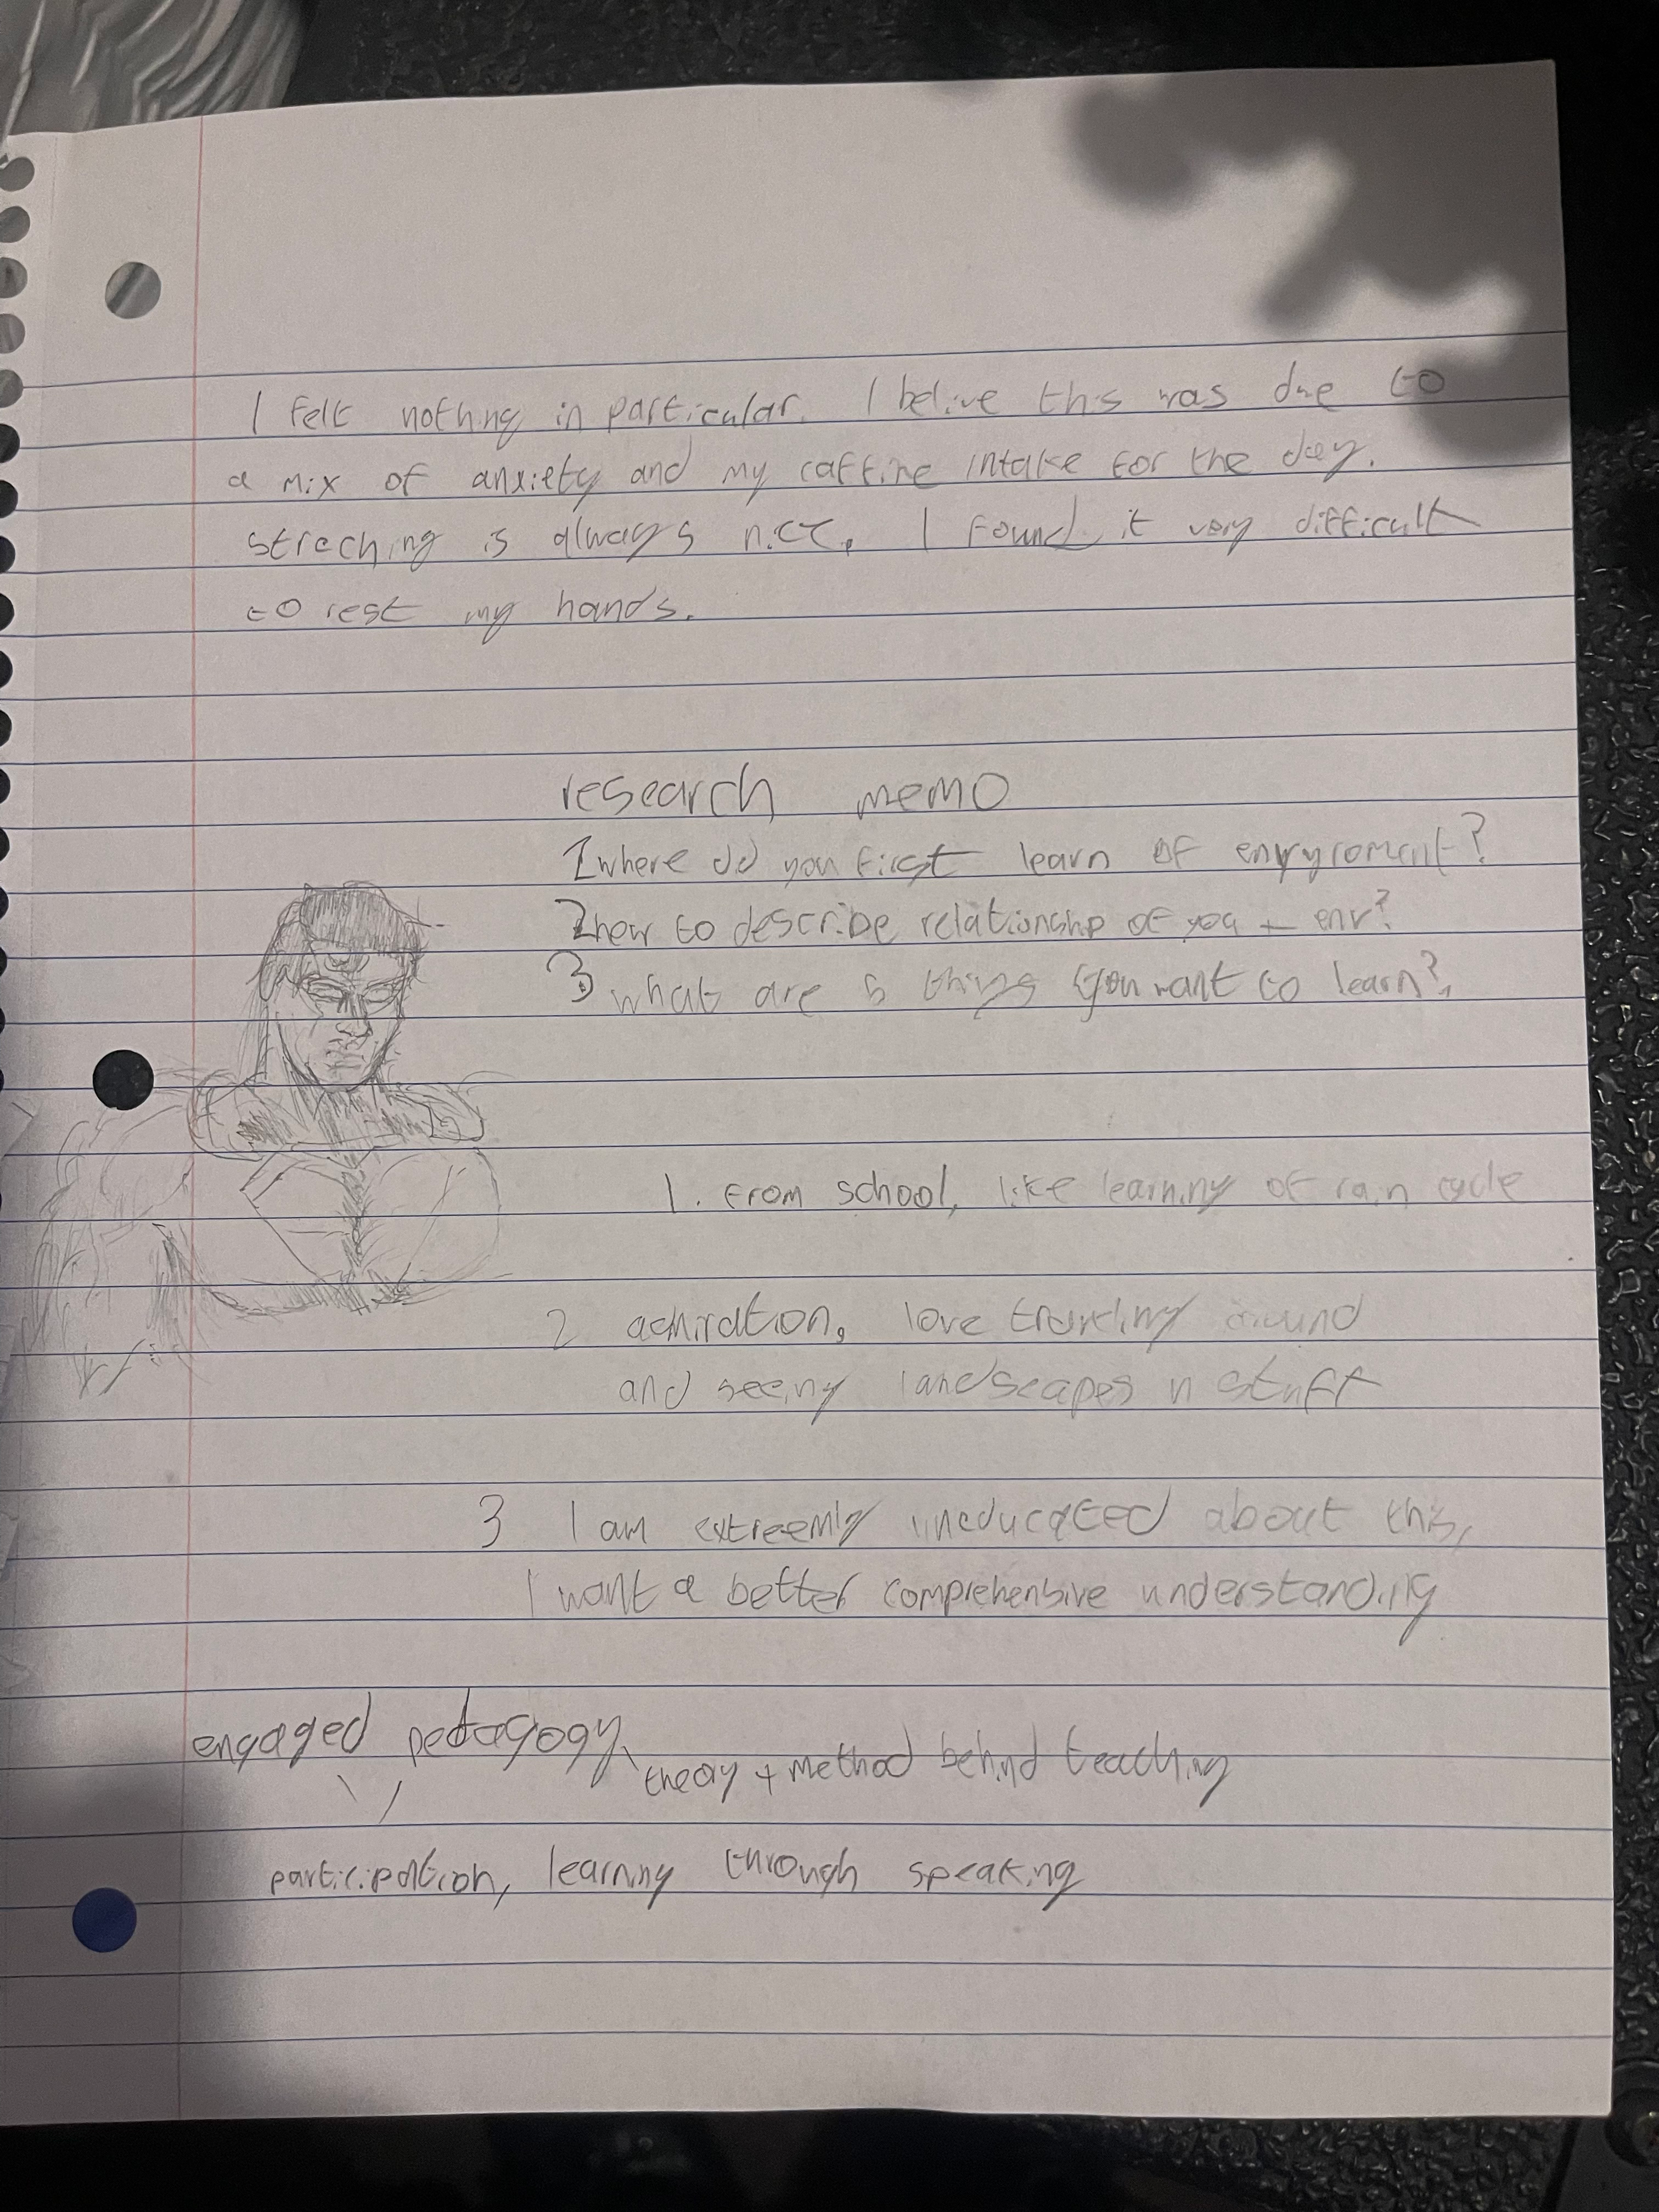 I felt nothing in particular. I belive this was due to
a mix of anxiety and my caffine intake for the day.
streching is always nice. I found it very difficult
to rest my hands.
research memo
1 where did you first learn of envyroment?
2 how to describe relationship of you + env?
3 what are 5 things you want to learn?
1. From school, like learning of rain cycle
2 admiration, love traveling around
and seeing landscapes n stuff
3 I am extreemly uneducated about this,
I want a better comprehensive understanding
engaged pedagogy
theory + method behind teaching
participation, learning through speaking